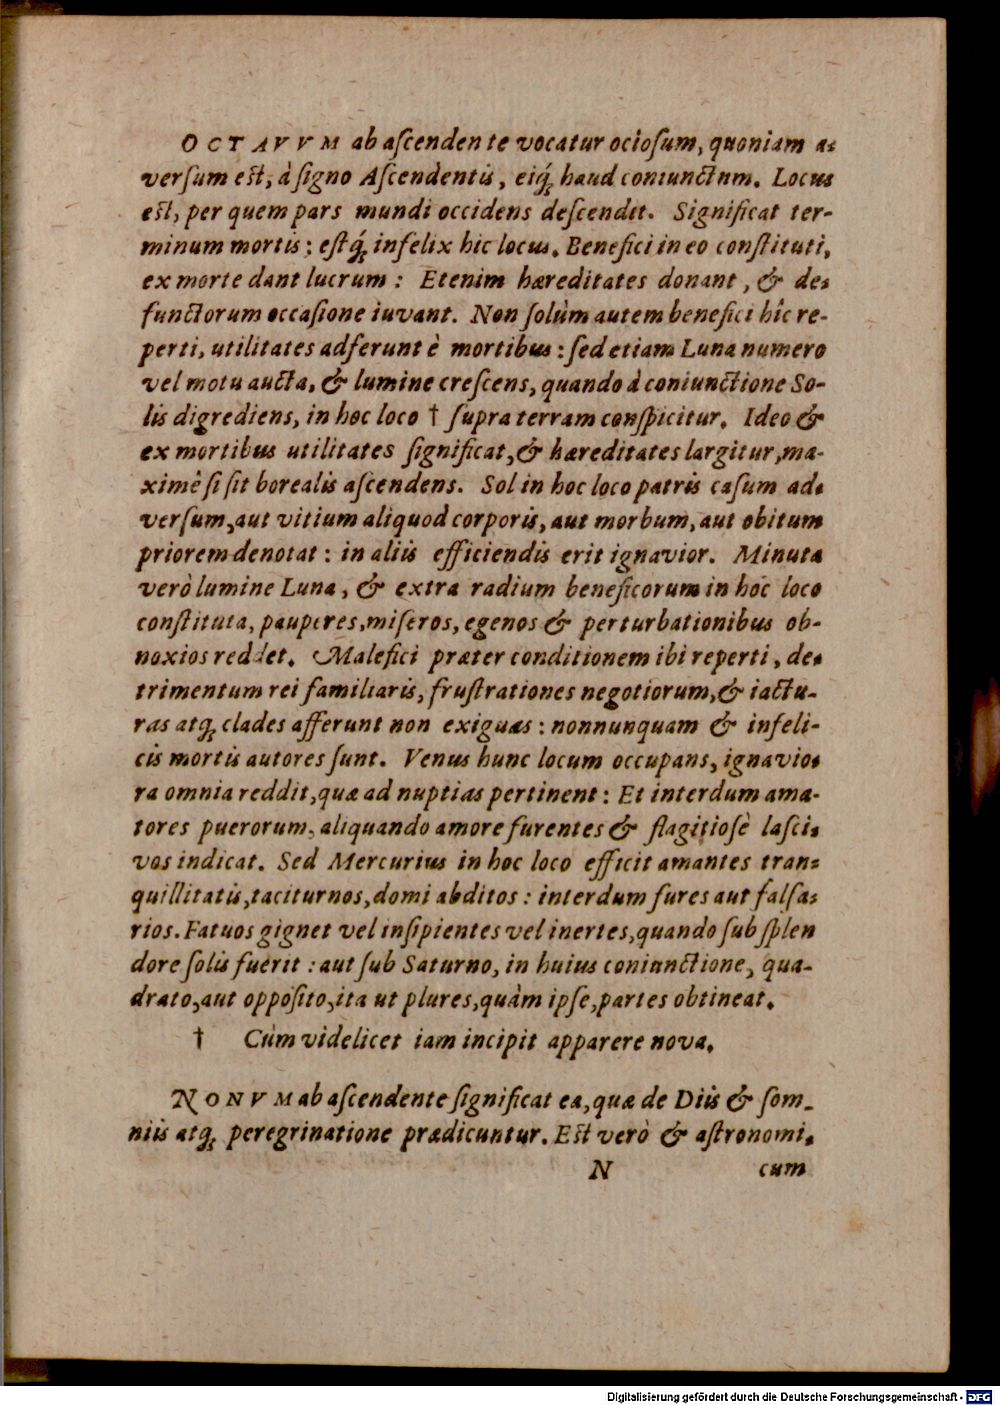 OCTAVVM ab aſcendente vocatur ocioſum, quoniam a-
verſum est, à ſigno Aſcendentis, eiq́; haud coniunctum. Locus
est, per quem pars mundi occidens deſcendit. Significat ter-
minum mortis: eſtq́; infelix hic locus. Benefici in eo conſtituti,
ex morte dant lucrum: Etenim hæreditates donant, & de-
functorum occaſione iuvant. Non ſolùm autem benefici hîc re-
perti, utilitates adferunt è mortibus: ſed etiam Luna numero
vel motu aucta, & lumine creſcens, quando à coniunctione So-
lis digrediens, in hoc loco † ſupra terram conſpicitur. Ideo &
ex mortibus utilitates ſignificat, & hæreditates largitur, ma-
ximè ſi ſit borealis aſcendens. Sol in hoc loco patris caſum ad-
verſum, aut vitium aliquod corporis, aut morbum, aut obitum
priorem denotat: in aliis efficiendis erit ignavior. Minuta
verò lumine Luna, & extra radium beneficorum in hoc loco
conſtituta, pauperes, miſeros, egenos & perturbationibus ob-
noxios reddet. Malefici præter conditionem ibi reperti, de-
trimentum rei familiaris, fruſtrationes negotiorum, & iactu-
ras atq; clades afferunt non exiguas: nonnunquam & infeli-
cis mortis autores ſunt. Venus hunc locum occupans, ignavio-
ra omnia reddit, quæ ad nuptias pertinent: Et interdum ama-
tores puerorum, aliquando amore furentes & flagitioſè laſci-
vos indicat. Sed Mercurius in hoc loco efficit amantes tran-
quillitatis, taciturnos, domi abditos: interdum fures aut falſa-
rios. Fatuos gignet vel inſipientes vel inertes, quando ſub ſplen
dore ſolis fuerit: aut ſub Saturno, in huius coniunctione, qua-
drato, aut oppoſito, ita ut plures, quàm ipſe, partes obtineat.
† Cùm videlicet iam incipit apparere nova.
NONVM ab aſcendente ſignificat ea, quæ de Diis & ſom-
niis atq; peregrinatione prædicuntur. Est verò & aſtronomi-
N cum
Digitalisierung gefördert durch die Deutsche Forschungsgemeinschaft - DFG